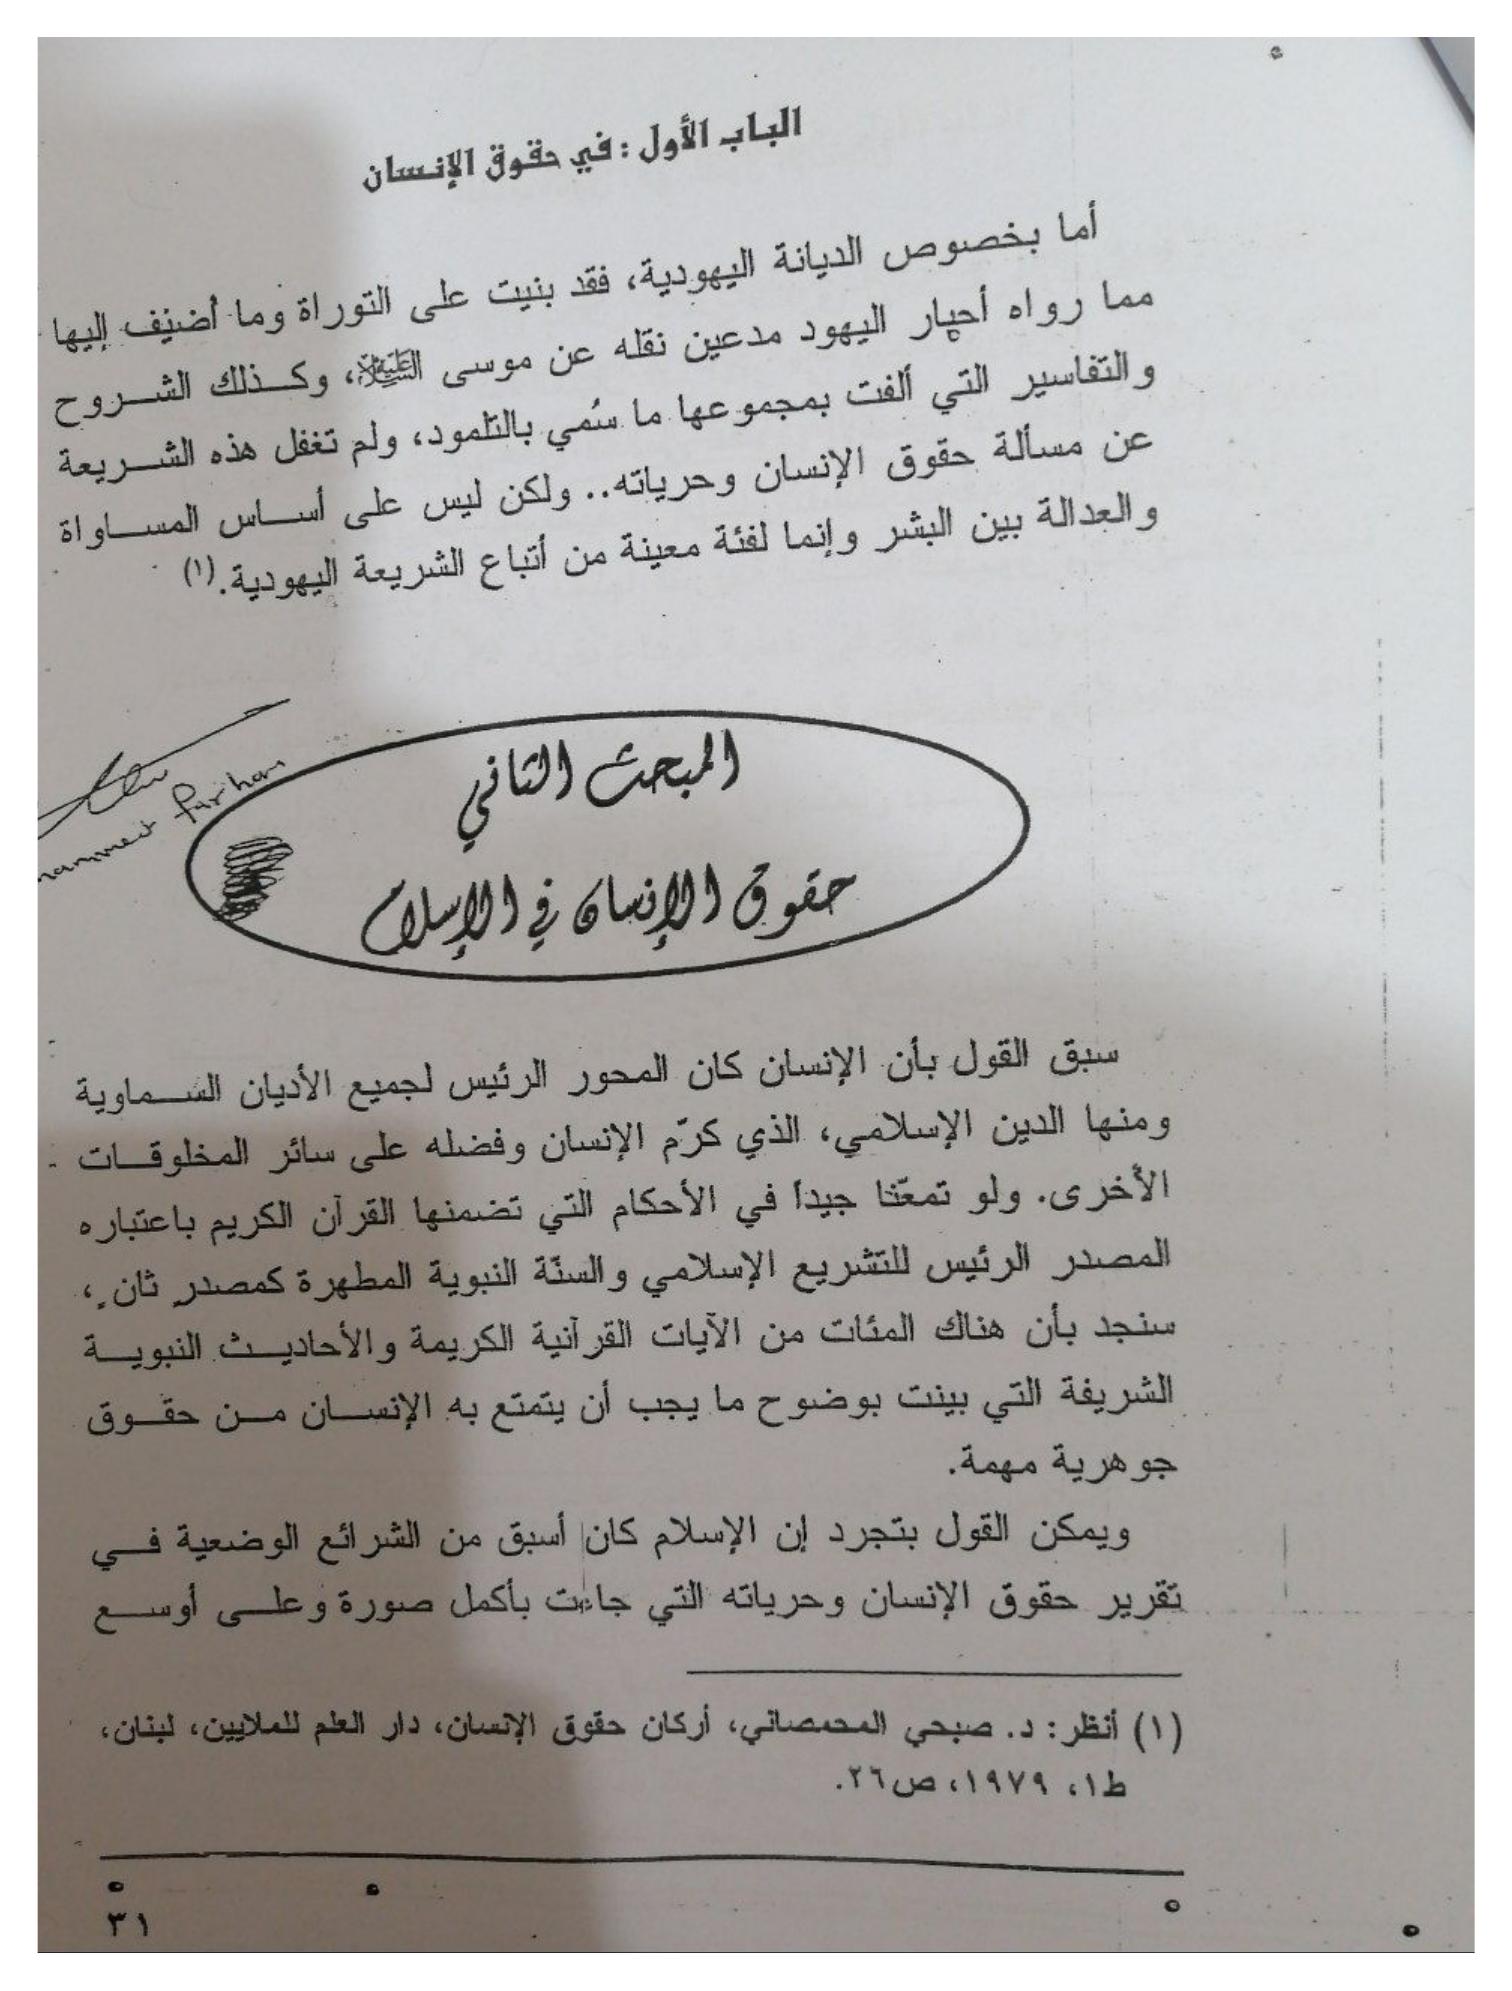 الباب الأول : في حقوق الإنسان
أما بخصوص الديانة اليهودية، فقد بنيت على التوراة وما أضيف إليها
مما رواه أحبار اليهود مدعين نقله عن موسى عليه السلام، وكذلك الشروح
والتفاسير التي ألفت بمجموعها ما سُمي بالتلمود، ولم تغفل هذه الشريعة
عن مسألة حقوق الإنسان وحرياته.. ولكن ليس على أساس المساواة
والعدالة بين البشر وإنما لفئة معينة من أتباع الشريعة اليهودية.(١)
المبحث الثاني
حقوق الإنسان في الإسلام
سبق القول بأن الإنسان كان المحور الرئيس لجميع الأديان السماوية
ومنها الدين الإسلامي، الذي كرّم الإنسان وفضله على سائر المخلوقات
الأخرى. ولو تمعّنا جيداً في الأحكام التي تضمنها القرآن الكريم باعتباره
المصدر الرئيس للتشريع الإسلامي والسنّة النبوية المطهرة كمصدرٍ ثانٍ،
سنجد بأن هناك المئات من الآيات القرآنية الكريمة والأحاديث النبوية
الشريفة التي بينت بوضوح ما يجب أن يتمتع به الإنسان من حقوق
جوهرية مهمة.
ويمكن القول بتجرد إن الإسلام كان أسبق من الشرائع الوضعية في
تقرير حقوق الإنسان وحرياته التي جاءت بأكمل صورة وعلى أوسع
(١) أنظر: د. صبحي المحمصاني، أركان حقوق الإنسان، دار العلم للملايين، لبنان،
ط١، ١٩٧٩، ص٢٦.
٣١